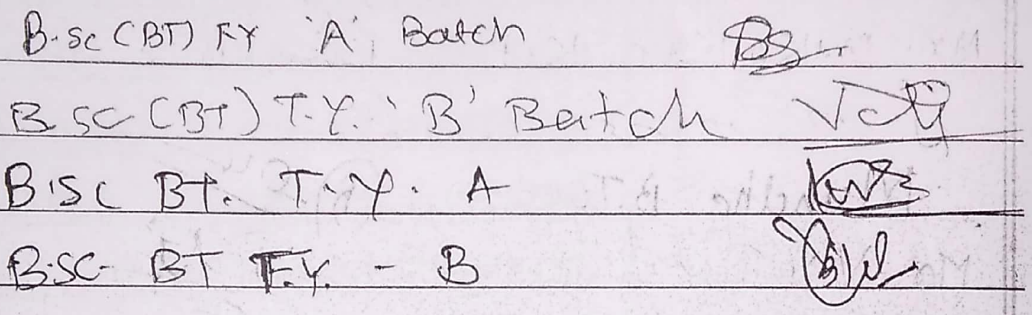 B.Sc (BT) FY 'A' Batch
B SC (BT) T.Y. 'B' Batch
B.SC BT. T.Y. A
B.SC- BT F.Y. - B